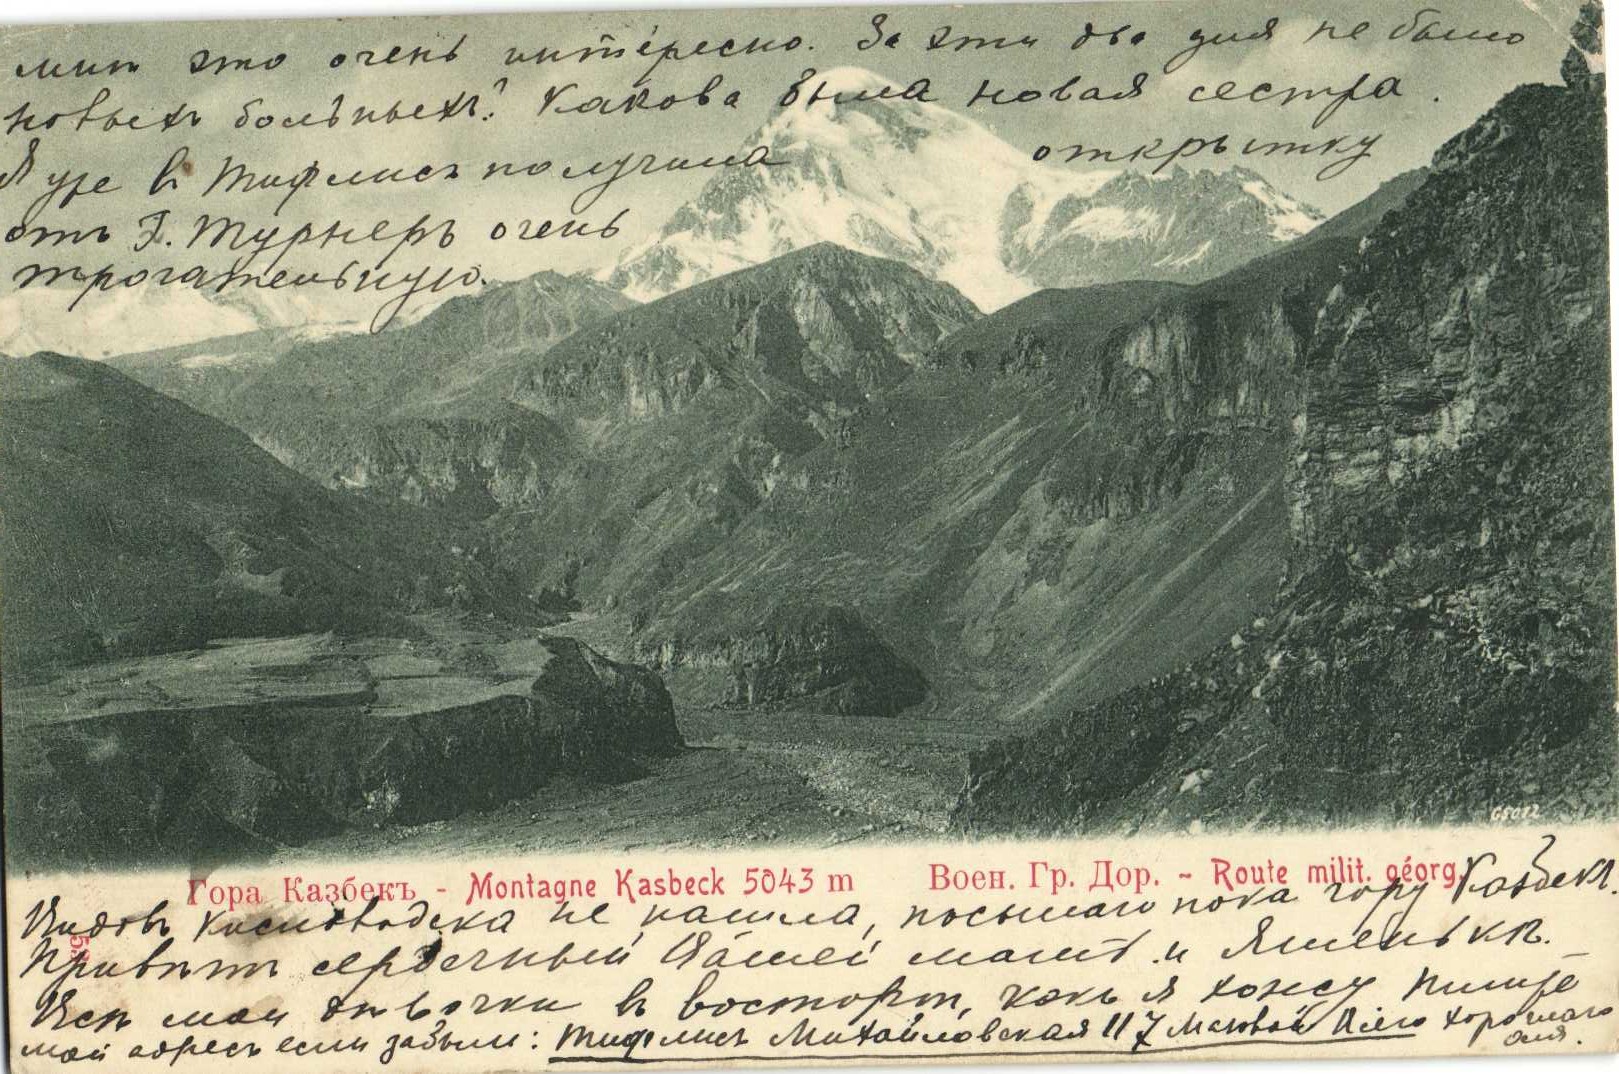 мит это очень интересно. За эти два дня не было
новыхъ больныхъ? Какова была новая сестра.
Я уже въ Тифлисѣ получила открытку
отъ Э. Турнеръ очень
трогательную.
65012
Гора Казбекъ - Montagne Kasbeck 5043 m Воен. Гр. Дор. - Route milit. géorg.
Видовъ Кисловодска не нашла, посылаю пока гору Казбекъ.
Привѣтъ сердечный Вашей мамѣ и
Всѣ мои дѣвочки въ восторгѣ, какъ я хожу Пишите
мой адресъ если забыли: Тифлисъ Михайловская 117 Всего хорошаго